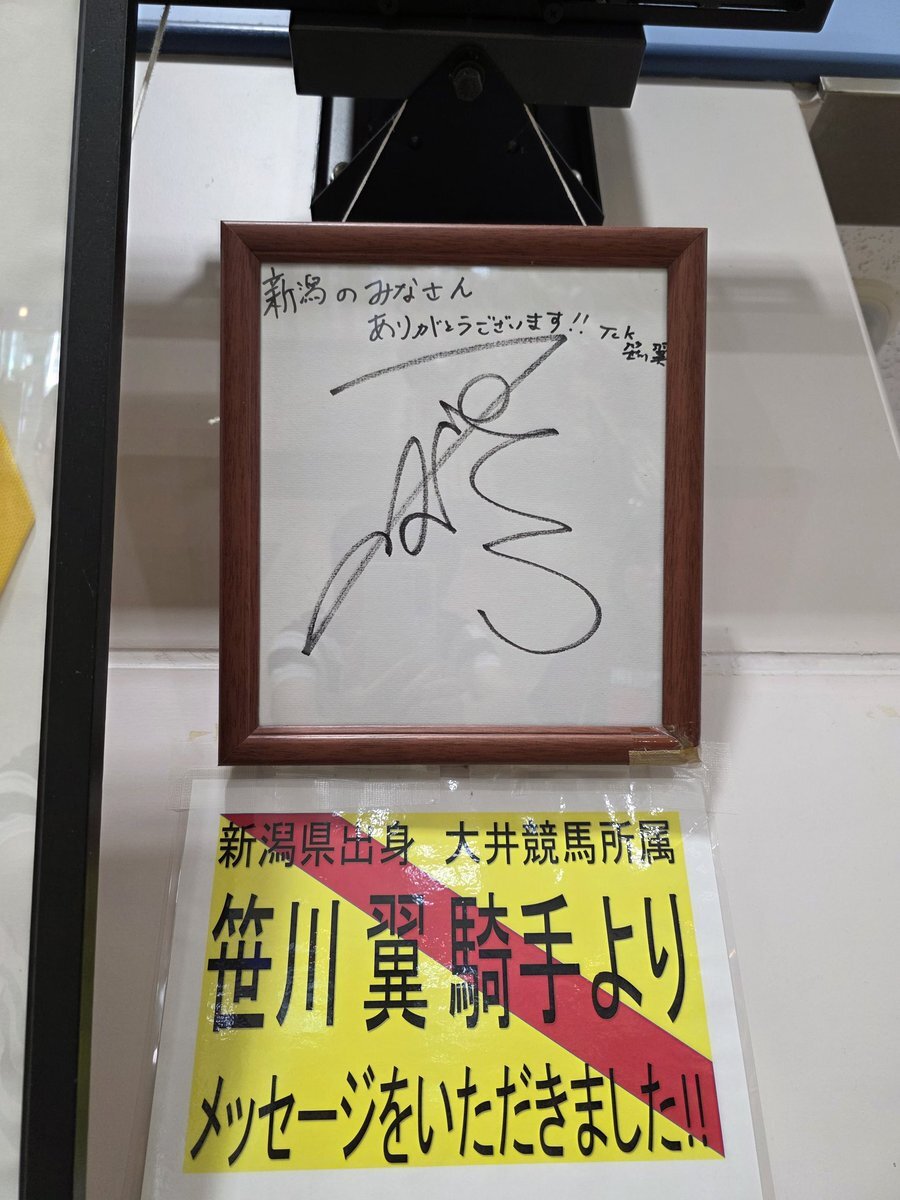 新潟のみなさん
ありがとうございます!! TCK
新潟県出身 大井競馬所属
笹川 翼 騎手より
メッセージをいただきました!!